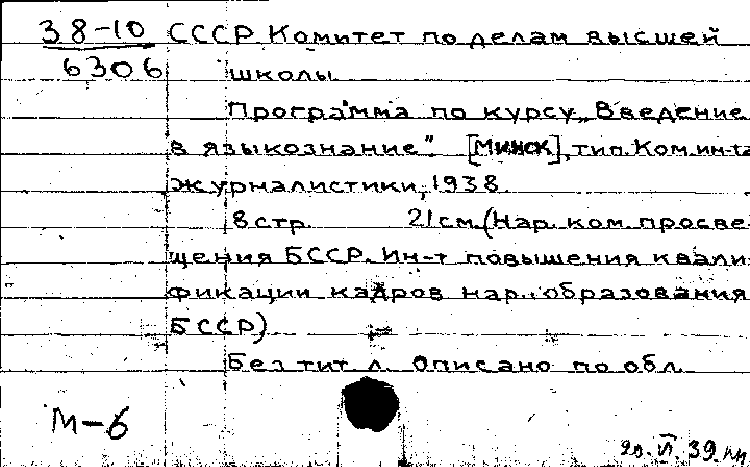 38-10 СССР Комитет по делам высшей
6306 школы.
Программа по курсу „Введение
в языкознание". [Минск], тип. Ком. ин-та
журналистики, 1938.
8 стр. 21 см. (Нар. ком. просве-
щения БССР. Ин-т повышения квали-
фикации кадров нар. образования
БССР)
Без тит. л. Описано по обл.
М-6
20.VI.39.